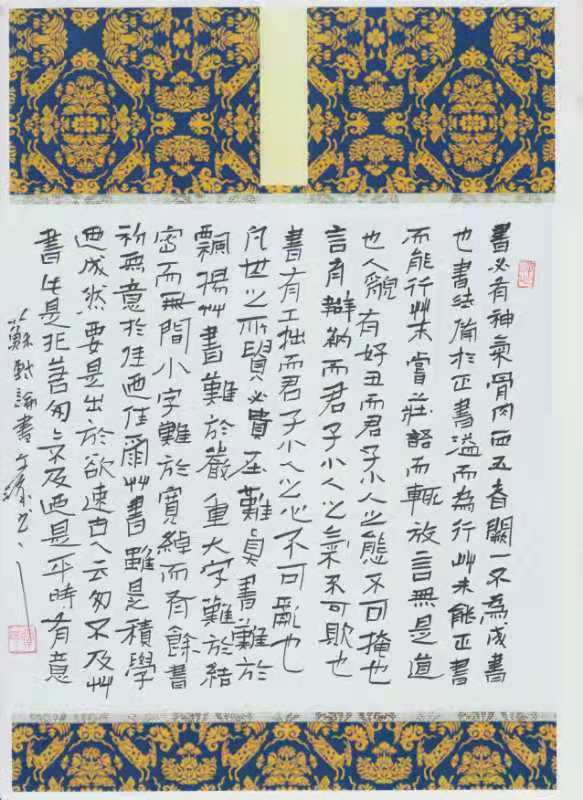 書必有神氣骨肉血五者闕一不為成書
也書法備於正書溢而為行艸未能正書
而能行艸未嘗莊語而輒放言無是道
也人貌有好丑而君子小人之態不可掩也
言有辯納而君子小人之氣不可欺也
書有工拙而君子小人之心不可亂也
凡世之所貴必貴難真書難於
飄揚艸書難於嚴重大字難於結
密而無間小字難於寬綽而有餘書
初無意於佳廼佳爾艸書雖是積學
廼成然要是出於欲速古人云匆不及艸
書此是非匆及廼是平時有意
蘇軾論書